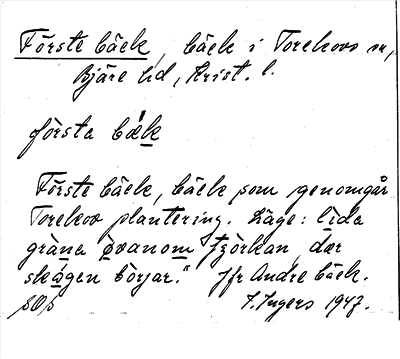 Förste bäck, bäck i Torekovs sn,
Bjäre hd, Krist. l.
första bæk
Förste bäck, bäck som genomgår
Torekov plantering. Läge: lida
grana ovanom tjörkan, dær
skogen börjar." Jfr Andre bäck.
I. Ingers 1947.